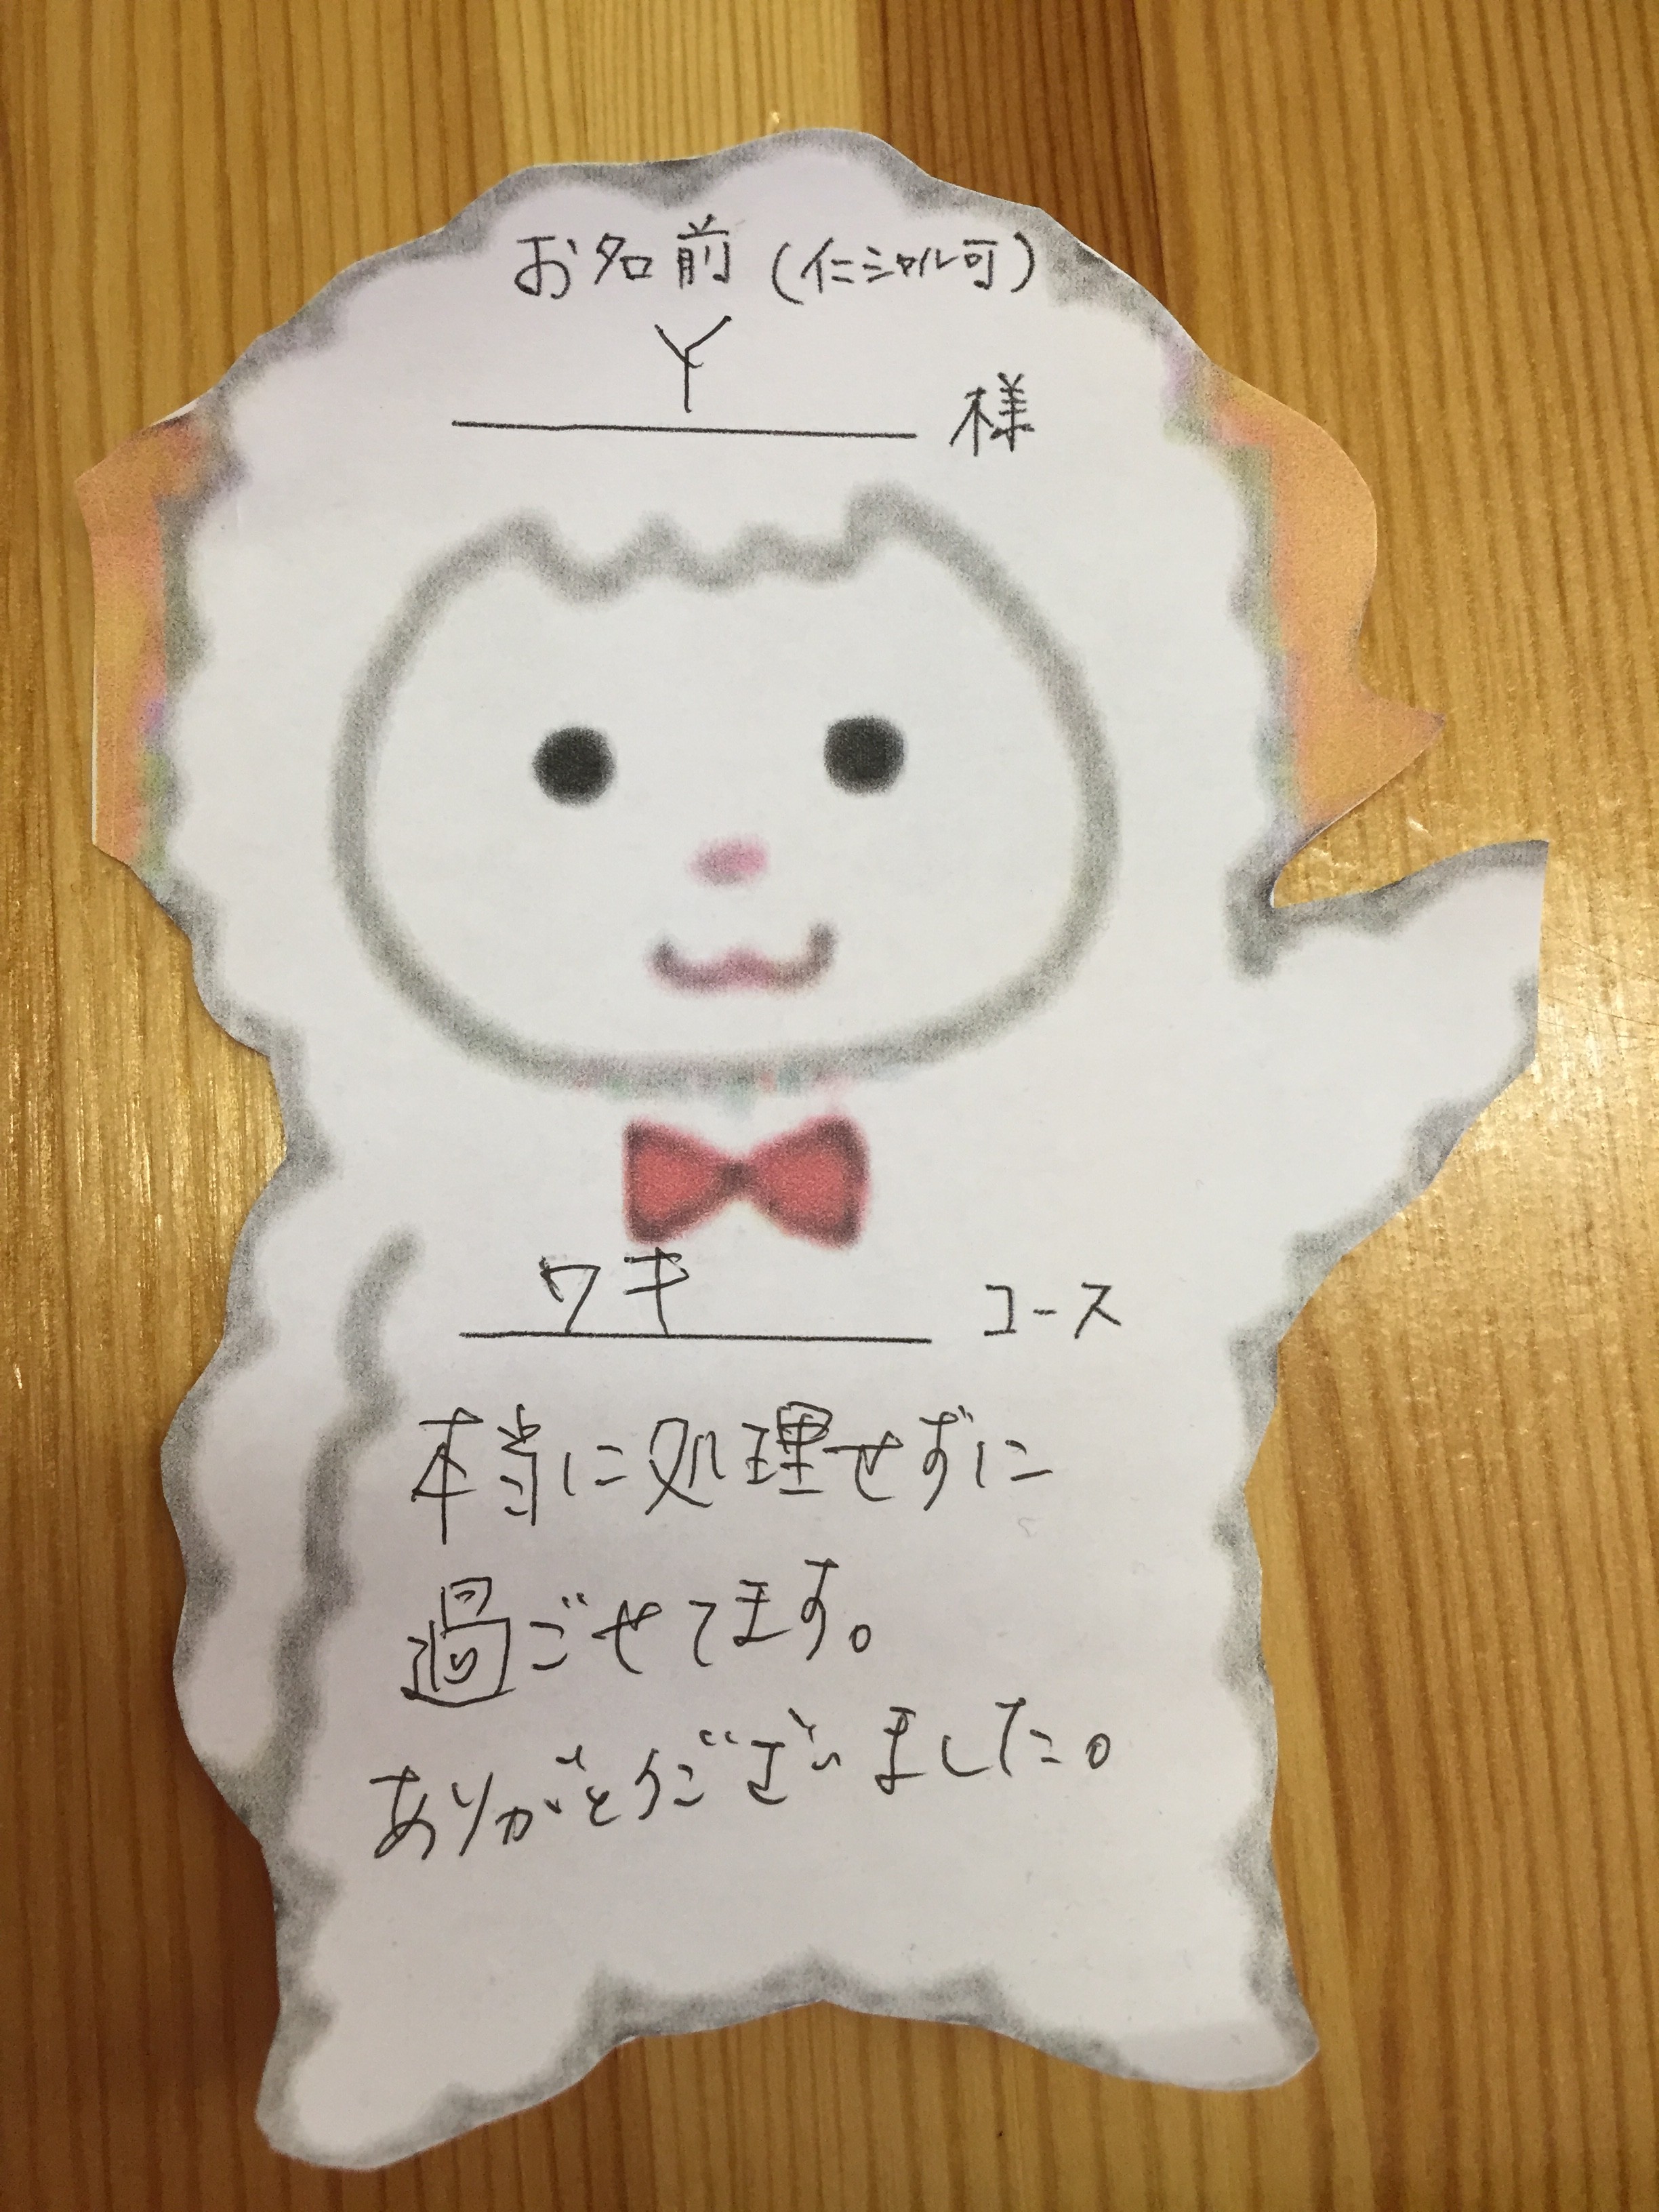 お名前(イニシャル可)
Y 様
ワキ コース
本当に処理せずに
過ごせてます。
ありがとうございました。